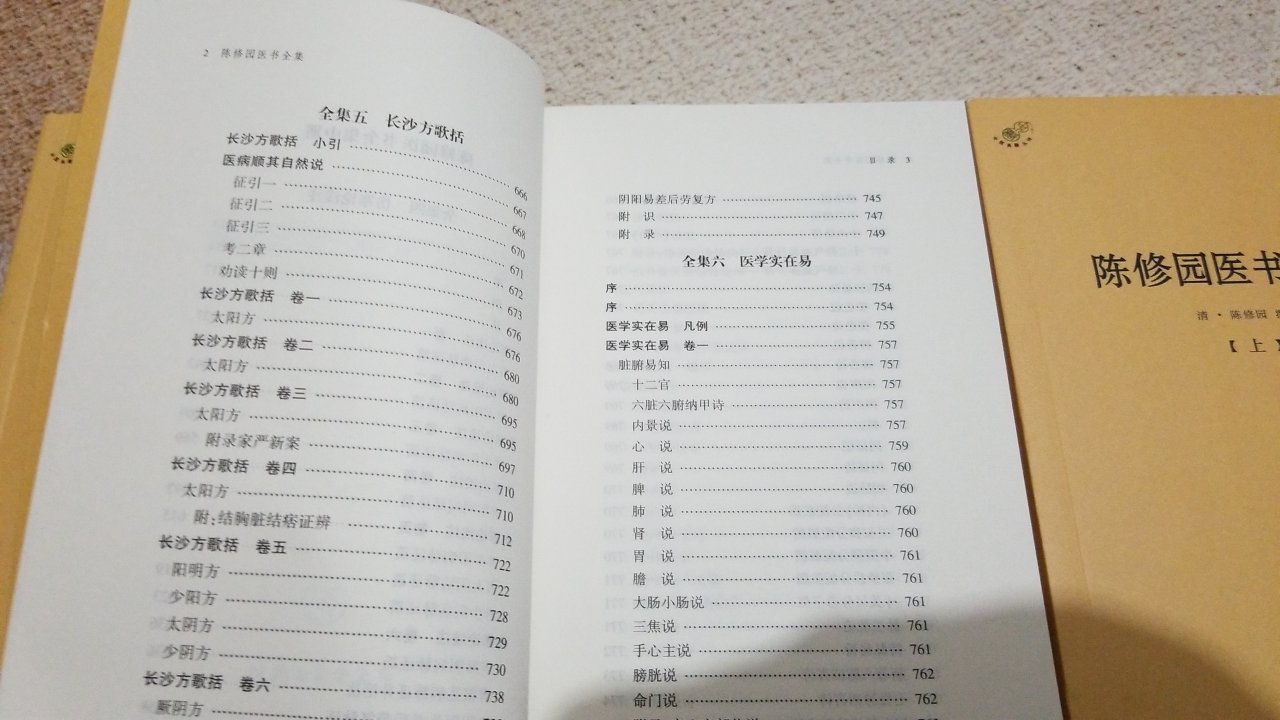 2 陈修园医书全集
全集五 长沙方歌括
长沙方歌括 小引 666
医病顺其自然说 667
征引一 668
征引二 670
征引三 671
考二章 672
劝读十则 673
长沙方歌括 卷一 676
太阳方 676
长沙方歌括 卷二 680
太阳方 680
长沙方歌括 卷三 695
太阳方 695
附录家严新案 697
长沙方歌括 卷四 710
太阳方 710
附:结胸脏结痞证辨 712
长沙方歌括 卷五 722
阳明方 722
少阳方 728
太阴方 729
少阴方 730
长沙方歌括 卷六 738
厥阴方
目 录 3
阴阳易差后劳复方 745
附 识 747
附 录 749
全集六 医学实在易
序 754
序 754
医学实在易 凡例 755
医学实在易 卷一 757
脏腑易知 757
十二官 757
六脏六腑纳甲诗 757
内景说 757
心 说 759
肝 说 760
脾 说 760
肺 说 760
肾 说 760
胃 说 761
膽 说 761
大肠小肠说 761
三焦说 761
手心主说 761
膀胱说 762
命门说 762
陈修园医书
清·陈修园
【上】